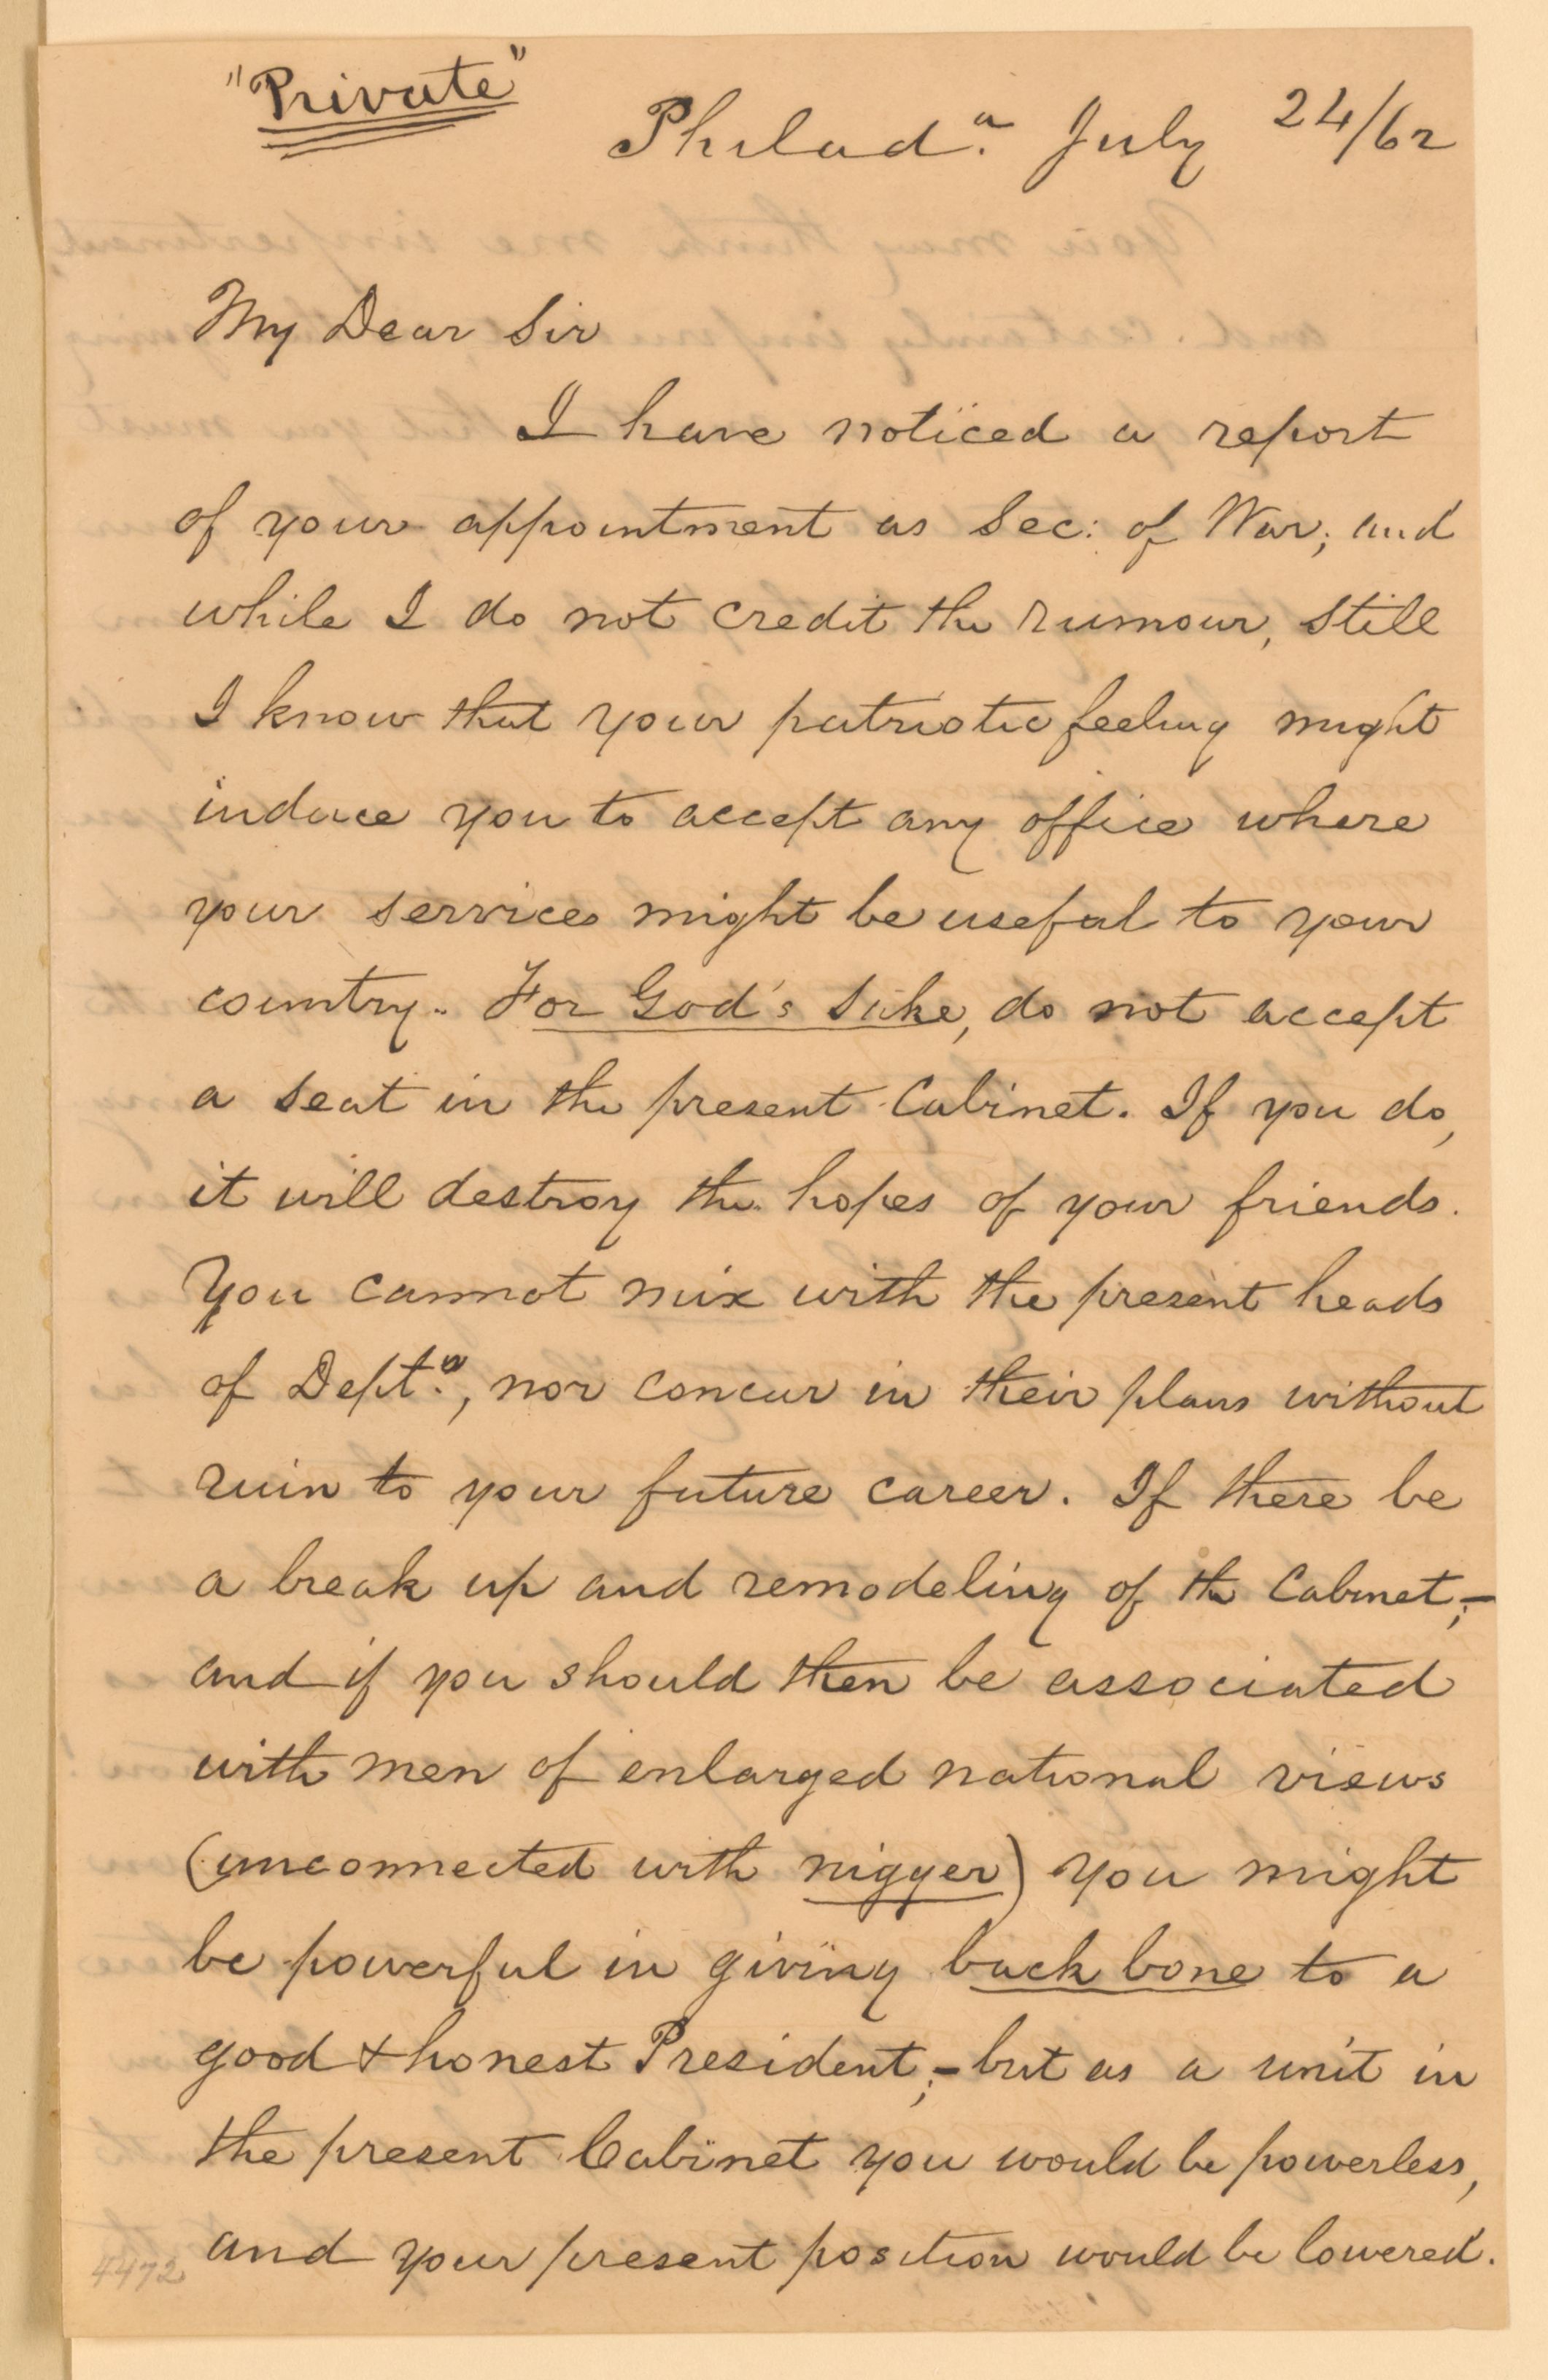 "Private"
Philad.a July 24/62
My Dear Sir
I have noticed a report
of your appointment as Sec: of War; and
while I do not credit the rumour, still
I know that your patriotic feeling might
induce you to accept any office where
your services might be useful to your
country. For God's sake, do not accept
a seat in the present Cabinet. If you do,
it will destroy the hopes of your friends.
You cannot mix with the present heads
of Dept.s, nor concur in their plans without
ruin to your future career. If there be
a break up and remodeling of the Cabinet;-
and if you should then be associated
with men of enlarged national views
(unconnected with nigger) you might
be powerful in giving back bone to a
good & honest President;- but as a unit in
the present Cabinet you would be powerless,
and your present position would be lowered.
4472